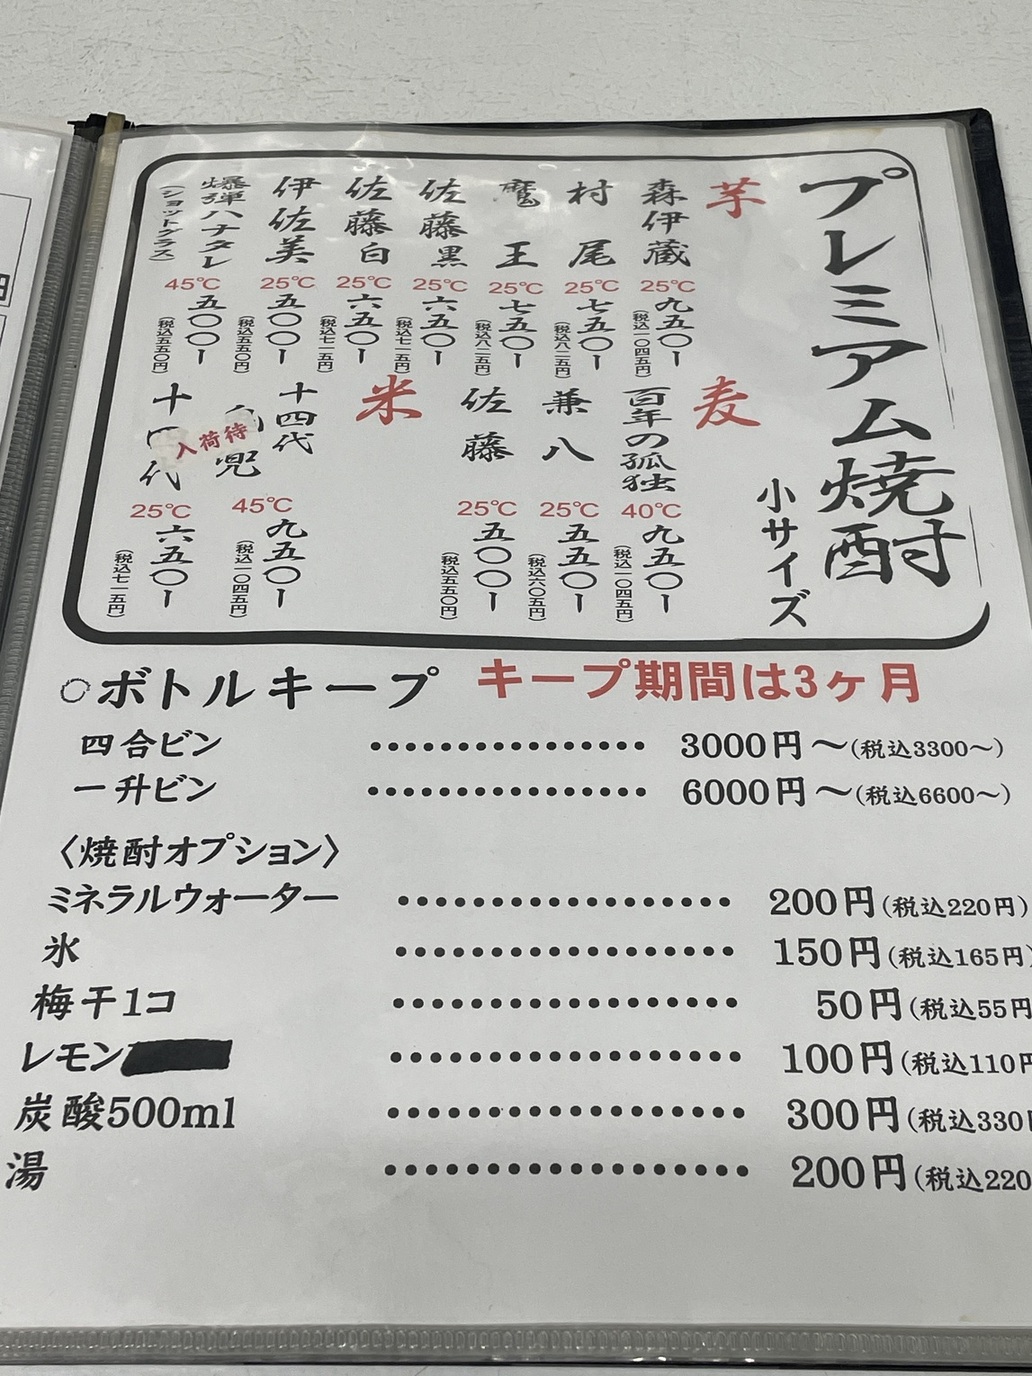 プレミアム焼酎
小サイズ
芋
森伊蔵 25℃ 九五〇ー (税込一〇四五円)
村尾 25℃ 七五〇ー (税込八二五円)
魔王 25℃ 七五〇ー (税込八二五円)
佐藤黒 25℃ 六五〇ー (税込七一五円)
佐藤白 25℃ 六五〇ー (税込七一五円)
伊佐美 25℃ 五〇〇ー (税込五五〇円)
爆弾ハナタレ (ショットグラス) 45℃ 五〇〇ー (税込五五〇円)
麦
百年の孤独 40℃ 九五〇ー (税込一〇四五円)
兼八 25℃ 五五〇ー (税込六〇五円)
佐藤 25℃ 五〇〇ー (税込五五〇円)
米
十四代
兜 45℃ 九五〇ー (税込一〇四五円)
入荷待
十四代 25℃ 六五〇ー (税込七一五円)
○ボトルキープ キープ期間は3ヶ月
四合ビン ・・・・・・・・・・・・・・・・ 3000円〜(税込3300〜)
一升ビン ・・・・・・・・・・・・・・・・ 6000円〜(税込6600〜)
〈焼酎オプション〉
ミネラルウォーター ・・・・・・・・・・・・・・・・ 200円(税込220円)
氷 ・・・・・・・・・・・・・・・・ 150円(税込165円)
梅干1コ ・・・・・・・・・・・・・・・・ 50円(税込55円
レモン ・・・・・・・・・・・・・・・・ 100円(税込110円
炭酸500ml ・・・・・・・・・・・・・・・・ 300円(税込330円
湯 ・・・・・・・・・・・・・・・・ 200円(税込220